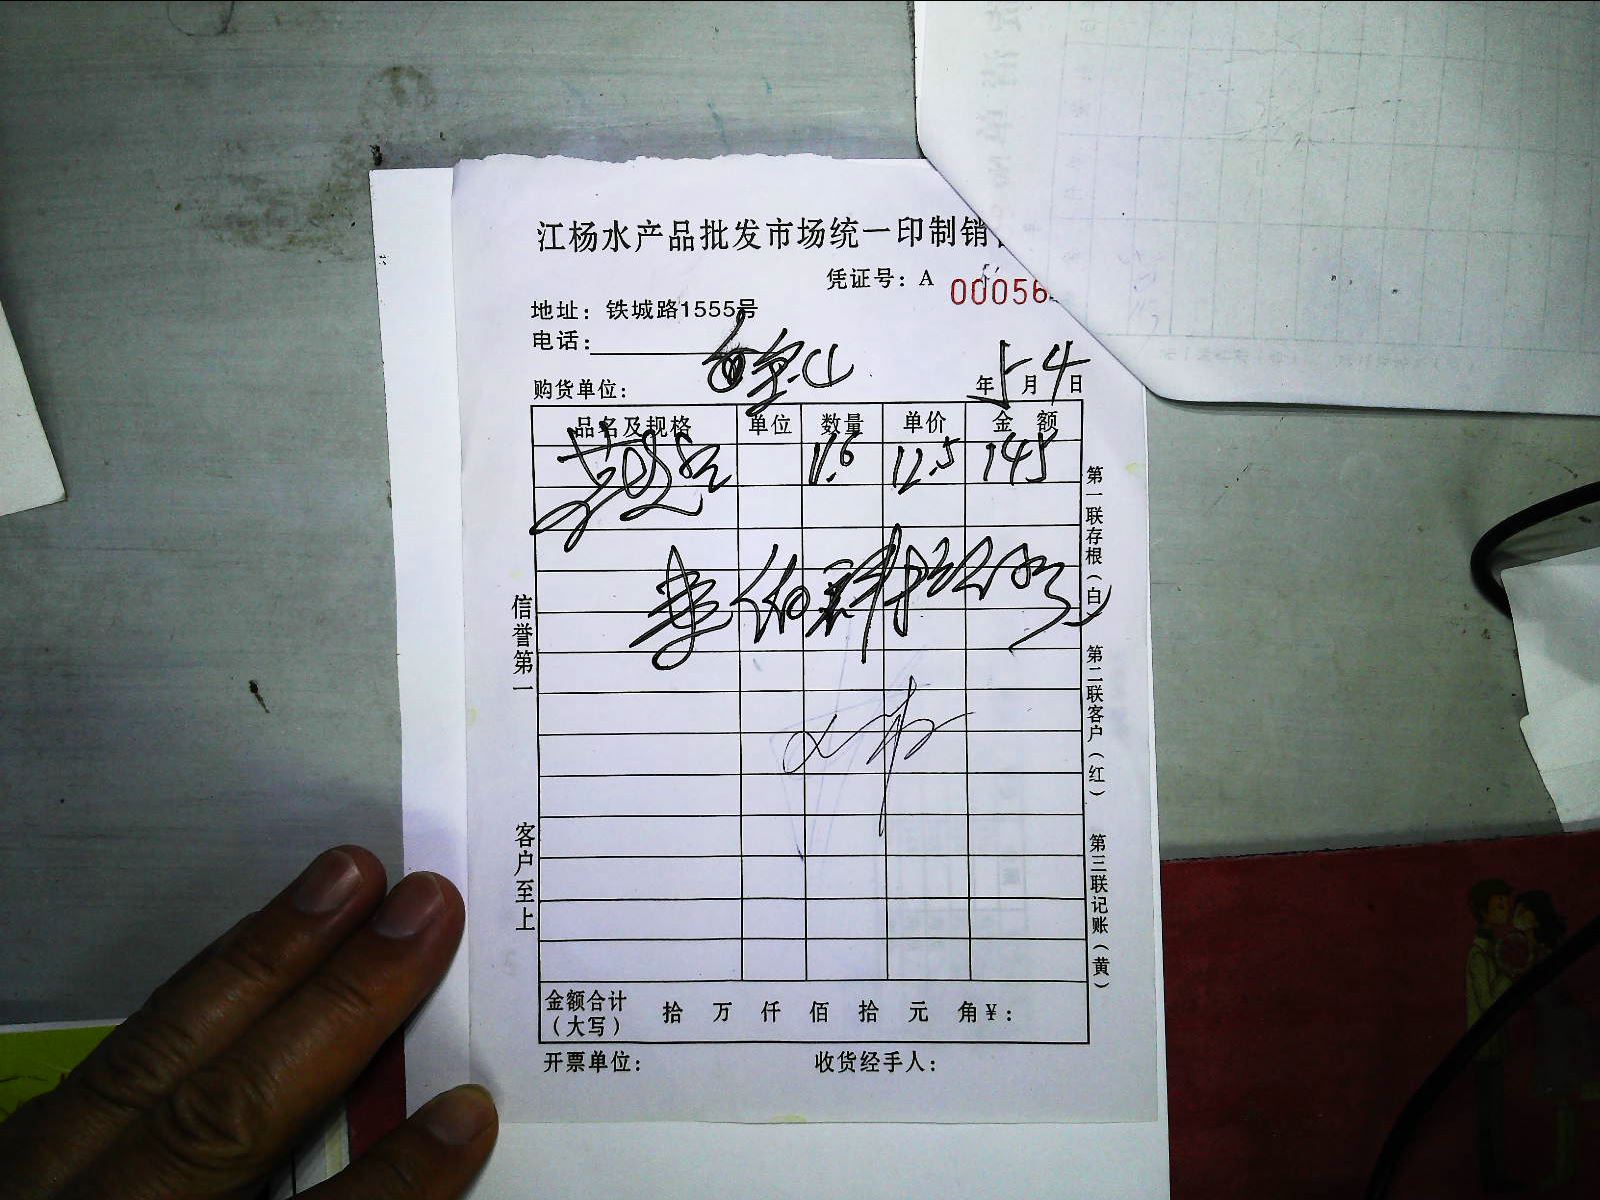 江杨水产品批发市场统一印制销
凭证号：A 00056
地址：铁城路1555号
电话：
购货单位：
年 5 月 4 日
品名及规格 单位 数量 单价 金 额
11.6 12.5 145
第一联存根（白）
第二联客户（红）
第三联记账（黄）
信誉第一
客户至上
金额合计（大写） 拾 万 仟 佰 拾 元 角 ¥：
开票单位： 收货经手人：